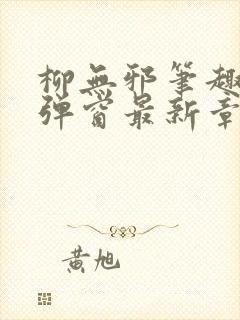 柳無邪筆趣
彈窗最新章
黃旭